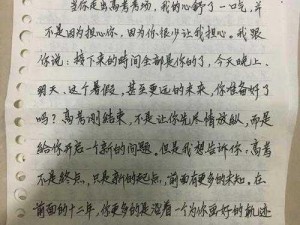 当你走出高考考场，我的心舒了一口气，并
不是因为担心你，因为你很少让我担心。我跟
你说：接下来的时间全部是你的了，今天晚上、
明天、这个暑假，甚至更远的未来，你准备好了
吗？高考刚结束，不是让你先尽情放纵，而是
给你开启一个新的问题。但是我想告诉你，高考
不是终点，只是新的起点，前面有更多的未知。在
前面的十二年，你更多的是沿着一个为你画好的轨迹